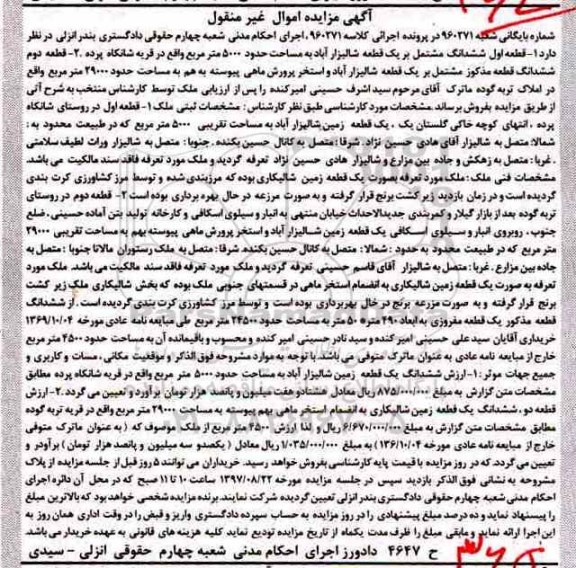 آگهی مزایده اموال غیر منقول
شماره بایگانی شعبه ۹۶۰۲۷۱ در پرونده اجرائی کلاسه ۹۶۰۲۷۱، اجرای احکام مدنی شعبه چهارم حقوقی دادگستری بندرانزلی در نظر
دارد ۱- قطعه اول ششدانگ مشتمل بر یک قطعه شالیزار آباد به مساحت حدود ۵۰۰۰ متر مربع واقع در قریه شانکاه پرده .۲- قطعه دوم
ششدانگ قطعه مذکور مشتمل بر یک قطعه شالیزار آباد و استخر پرورش ماهی پیوسته به هم به مساحت حدود ۲۹۰۰۰ متر مربع واقع
در املاک تربه گوده ماترک آقای مرحوم سید اشرف حسینی امیرکنده را پس از ارزیابی ملک توسط کارشناس منتخب به شرح آتی
از طریق مزایده بفروش برساند .مشخصات مورد کارشناسی طبق نظر کارشناس: مشخصات ثبتی ملک ۱- قطعه اول در روستای شانکاه
پرده ، انتهای کوچه خاکی گلستان یک ، یک قطعه زمین شالیزار آباد به مساحت تقریبی ۵۰۰۰ متر مربع که در طبیعت محدود به :
شمالا: متصل به شالیزار آقای هادی حسین نژاد. شرقا: متصل به کانال حسین بکنده . جنوبا: متصل به شالیزار وراث لطیف سلامتی
. غربا: متصل به زهکش و جاده بین مزارع و شالیزار هادی حسین نژاد تعرفه گردید و ملک مورد تعرفه فاقد سند مالکیت می باشد.
مشخصات فنی ملک: ملک مورد تعرفه بصورت یک قطعه زمین شالیکاری بوده که مرزبندی شده و توسط مرز کشاورزی کرت بندی
گردیده است و در زمان بازدید زیر کشت برنج قرار گرفته و به صورت مزرعه در حال بهره برداری بوده است ۲- قطعه دوم در روستای
تربه گوده بعد از بازار گیلار و کمربندی جدیدالاحداث خیابان منتهی به انبار و سیلوی اسکافی و کارخانه تولید بتن آماده حسینی . ضلع
جنوب . روبروی انبار و سیلوی اسکافی یک قطعه زمین شالیزار آباد و استخر پرورش ماهی پیوسته بهم به مساحت تقریبی ۲۹۰۰۰
متر مربع که در طبیعت محدود به حدود : شمالا : متصل به کانال حسین بکنده. شرقا: متصل به ملک رستوران مالانا جنوبا : متصل به
جاده بین مزارع . غربا : متصل به شالیزار آقای قاسم حسینی تعرفه گردید و ملک مورد تعرفه فاقد سند مالکیت می باشد. ملک مورد
تعرفه به صورت یک قطعه زمین شالیکاری به انضمام استخر ماهی در قسمتهای جنوبی ملک بوده که بخش شالیکاری ملک زیر کشت
برنج قرار گرفته و به صورت مزرعه برنج در حال بهره برداری بوده است و توسط مرز کشاورزی کرت بندی گردیده است . از ششدانگ
قطعه مذکور یک قطعه مفروزی به ابعاد ۴۹۰ متره ۵۰ متر به مساحت حدود ۲۴۵۰۰ متر مربع طی مبایعه نامه عادی مورخه ۱۳۶۹/۱۰/۰۴
خریداری آقایان سید علی حسینی امیر کنده و سید نادر حسینی امیر کنده و محسوب و باقیمانده آن به مساحت حدود ۴۵۰۰ متر مربع
خارج از مبایعه نامه عادی به عنوان ماترک متوفی می باشد. با توجه به موارد مشروحه فوق الذکر و موقعیت مکانی، مساحت و کاربری و
جمیع جهات موثر : ۱- ارزش ششدانگ یک قطعه زمین شالیزار آباد به مساحت حدود ۵۰۰۰ متر مربع واقع در قریه شانکاه پرده مطابق
مشخصات متن گزارش به مبلغ ۸۷۵/۰۰۰/۰۰۰ ریال معادل هشتاد و هفت میلیون و پانصد هزار تومان برآورد و تعیین می گردد. ۲- ارزش
قطعه دو ، ششدانگ یک قطعه زمین شالیکاری به انضمام استخر ماهی بهم پیوسته به مساحت ۲۹۰۰۰ متر مربع واقع در قریه تربه گوده
مطابق مشخصات متن گزارش به مبلغ ۶/۶۷۰/۰۰۰/۰۰۰ ریال و لذا ارزش ۴۵۰۰ متر مربع از ملک موصوف که ( به عنوان ماترک متوفی
خارج از مبایعه نامه عادی مورخه ۱۳۶/۱۰/۰۴) به مبلغ ۱/۰۳۵/۰۰۰/۰۰۰ ریال معادل ( یکصدو سه میلیون و پانصد هزار تومان ) برآورد و
تعیین می گردد. که در روز مزایده با قیمت پایه کارشناسی بفروش خواهد رسید. خریداران می توانند ۵ روز قبل از جلسه مزایده از پلاک
مشروحه به نشانی فوق الذکر بازدید سپس در جلسه مزایده مورخه ۱۳۹۷/۰۸/۲۲ ساعت ۱۰ تا ۱۱ صبح که در محل آن دائره اجرای
احکام مدنی شعبه چهارم حقوقی دادگستری بندر انزلی تعیین گردیده شرکت نمایند. برنده مزایده شخصی خواهد بود که بالاترین مبلغ
را پیشنهاد نماید و ده درصد مبلغ پیشنهادی را در روز مزایده به حساب سپرده دادگستری واریز و قبض را در وقت اداری همان روز به
این اجرا ارائه نماید و مابقی مبلغ را ظرف مدت یکماه از تاریخ مزایده تودیع نماید کلیه هزینه های قانونی به عهده خریدار می باشد.
ح ۴۶۴۷ دادورز اجرای احکام مدنی شعبه چهارم حقوقی انزلی - سیدی